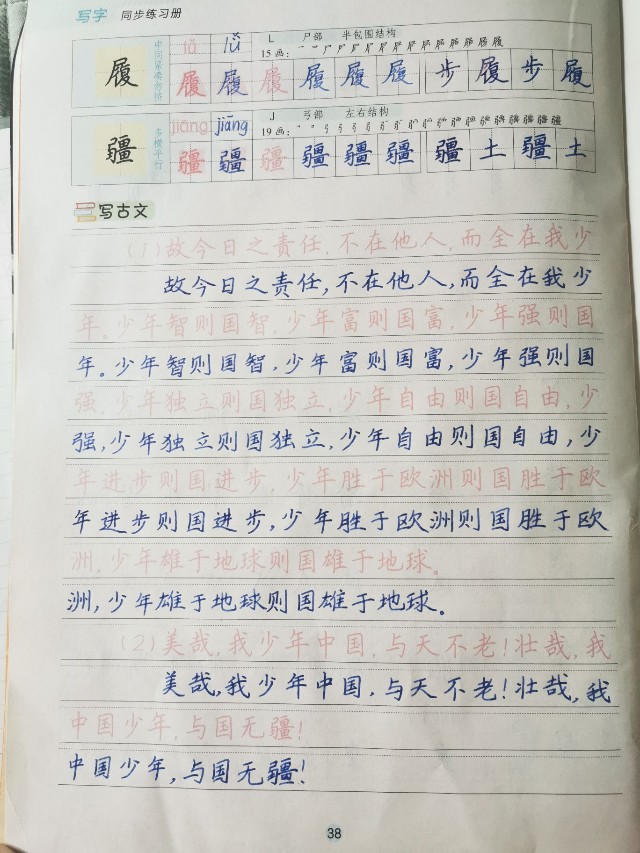 写字 同步练习册
履 中间紧凑勿挤 lǚ lǚ L 尸部 半包围结构
15画:
履 履 履 履 履 履 步 履 步 履
疆 多横平行 jiāng jiāng J 弓部 左右结构
19画:
疆 疆 疆 疆 疆 疆 疆 土 疆 土
写古文
(1)故今日之责任,不在他人,而全在我少
故今日之责任,不在他人,而全在我少
年。少年智则国智,少年富则国富,少年强则国
年。少年智则国智,少年富则国富,少年强则国
强,少年独立则国独立,少年自由则国自由,少
强,少年独立则国独立,少年自由则国自由,少
年进步则国进步,少年胜于欧洲则国胜于欧
年进步则国进步,少年胜于欧洲则国胜于欧
洲,少年雄于地球则国雄于地球。
洲,少年雄于地球则国雄于地球。
(2)美哉,我少年中国,与天不老!壮哉,我
美哉,我少年中国,与天不老!壮哉,我
中国少年,与国无疆!
中国少年,与国无疆!
38